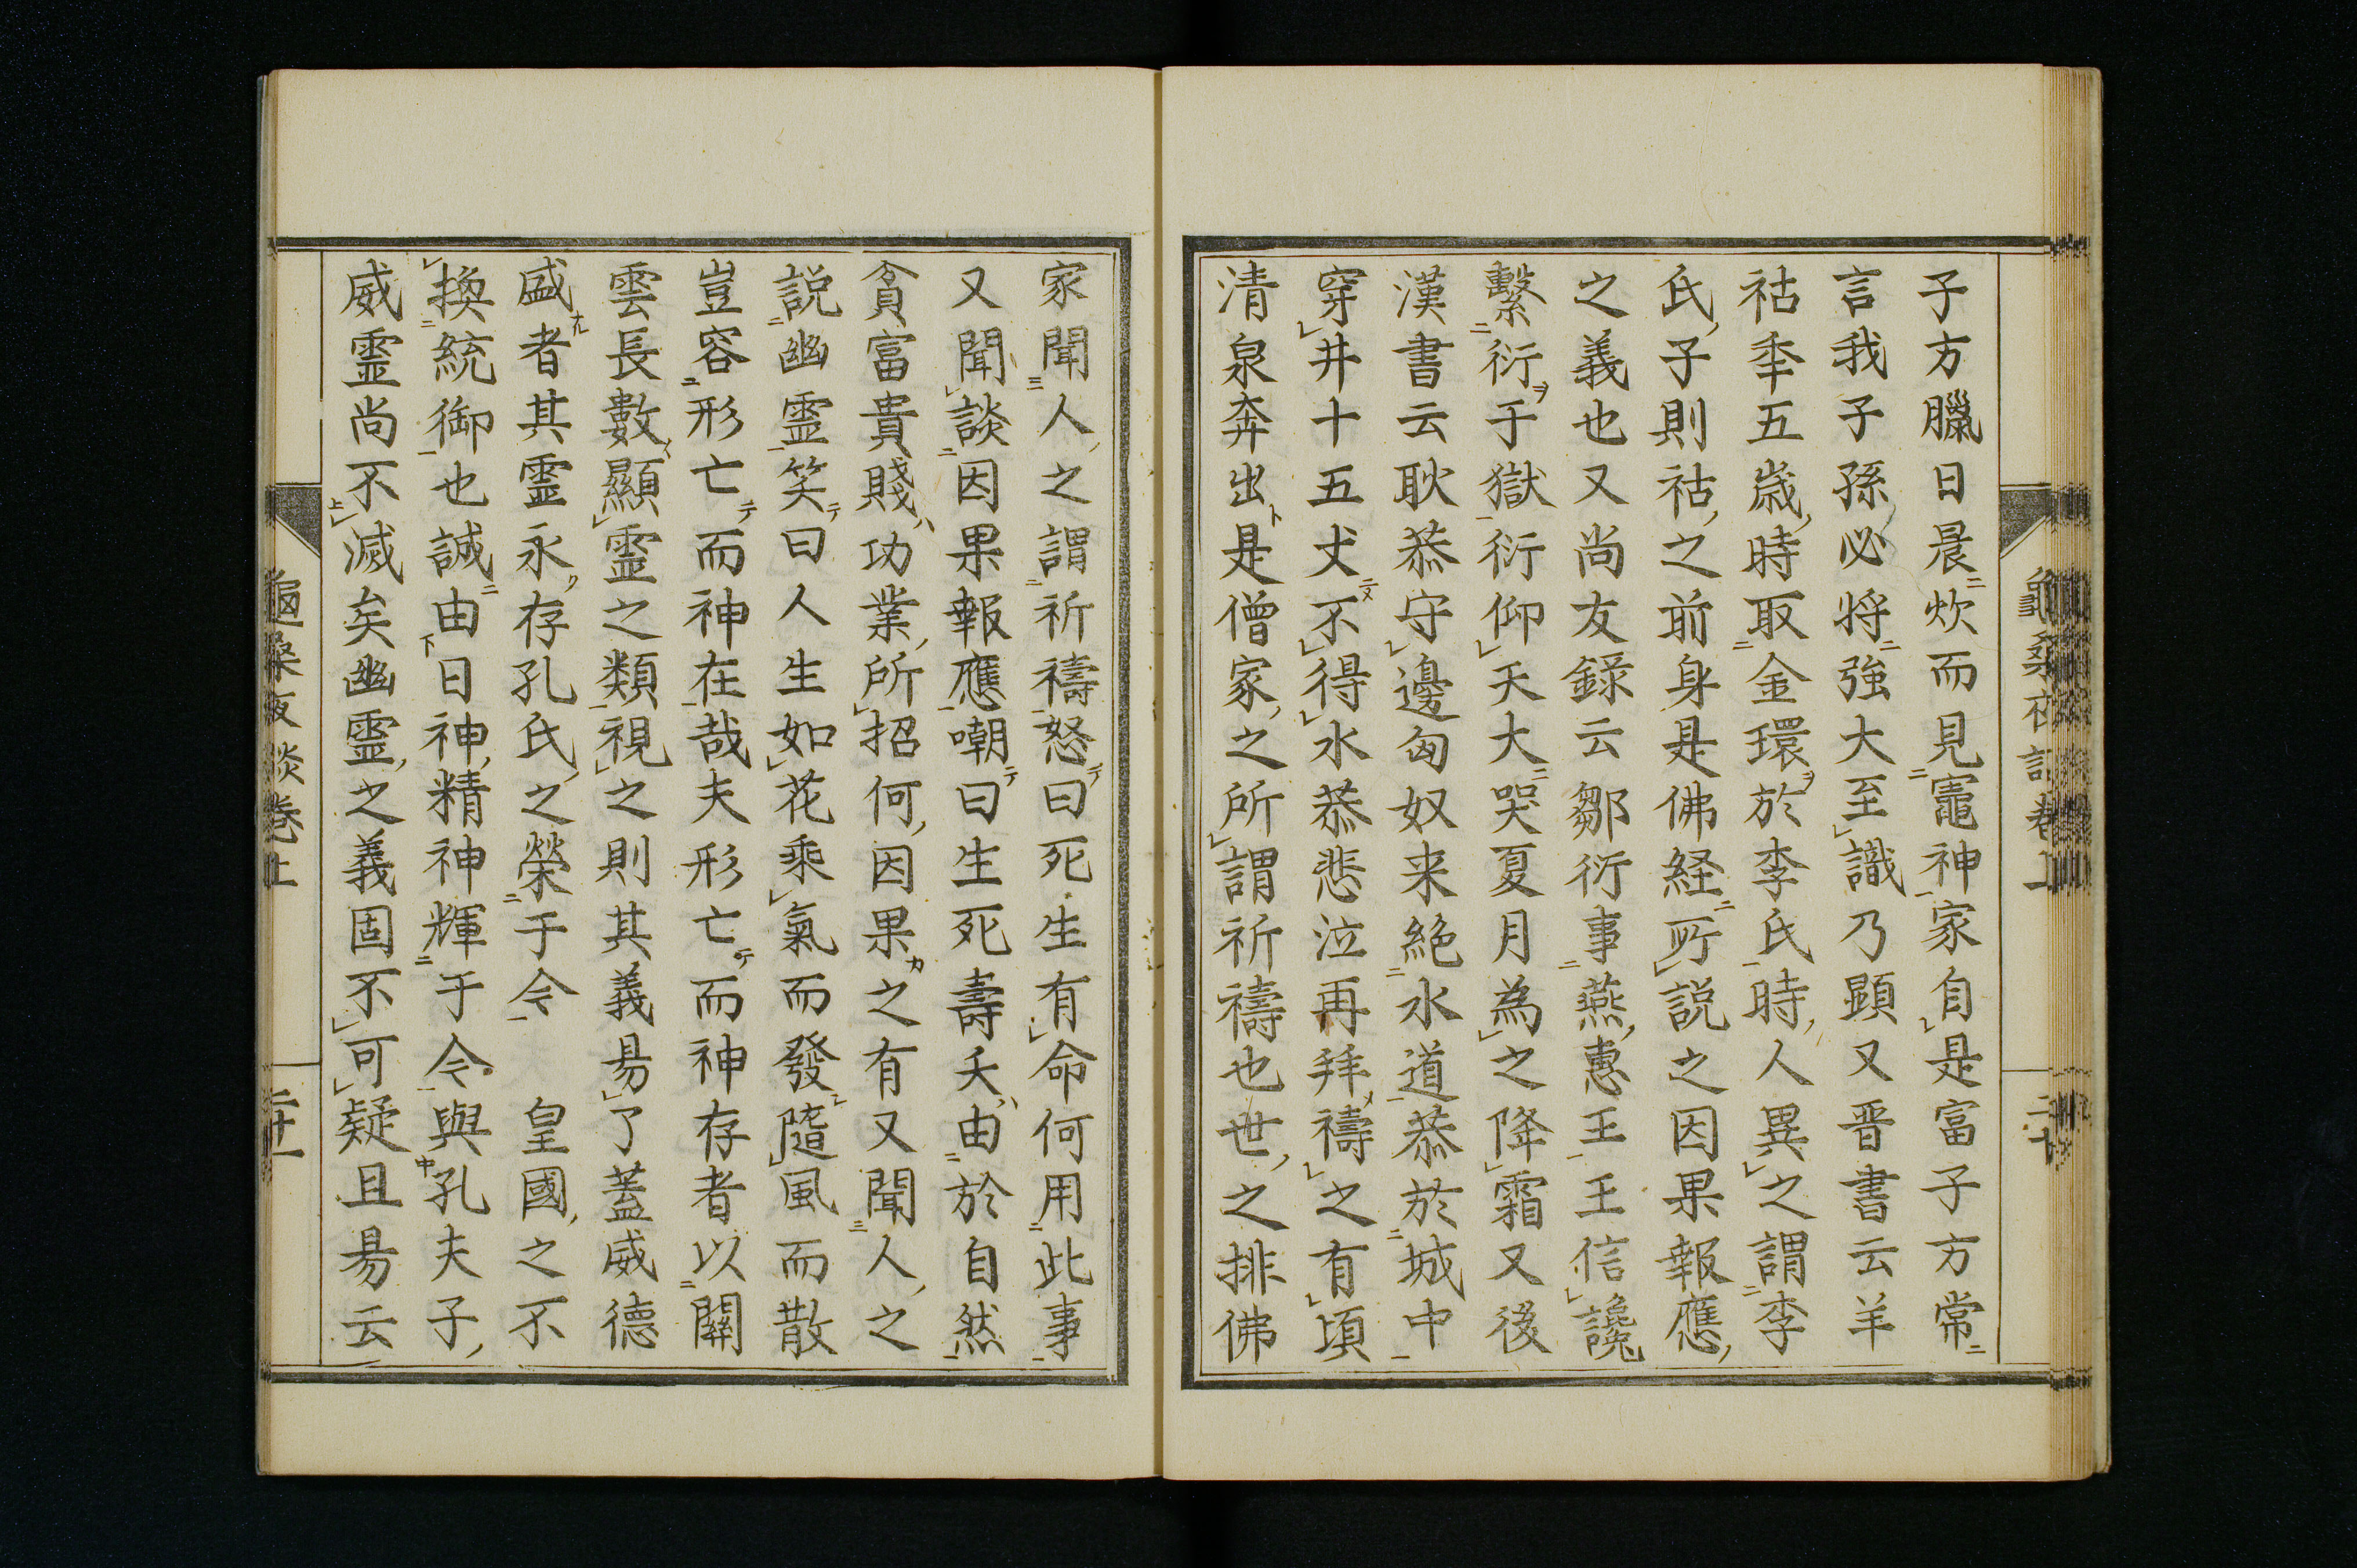 子方臘日晨炊而見竈神家自是富子方常
言我子孫必將強大至識乃顕又晋書云羊
祜秊五歳時取金環於李氏時人異之謂李
氏子則祜之前身是佛経所説之因果報應
之義也又尚友錄云鄒衍事燕惠王王信讒
繫衍于獄衍仰天大哭夏月為之降霜又後
漢書云耿恭守邊匈奴来絶水道恭於城中
穿井十五丈不得水恭悲泣再拜禱之有頃
清泉奔出是僧家之所謂祈禱也世之排佛
家聞人之謂祈禱怒曰死生有命何用此事
又聞談因果報應嘲曰生死壽夭由於自然
貪富貴賤功業所招何因果之有又聞人之
説幽霊笑曰人生如花乘氣而發隨風而散
豈容形亡而神在哉夫形亡而神存者以關
雲長數顯霊之類視之則其義昜了蓋威德
盛者其霊永存孔氏之榮于今 皇國之不
換統御也誠由日神精神輝于今與孔夫子
威霊尚不滅矣幽霊之義固不可疑且昜云
龜桑夜談卷上 二十一